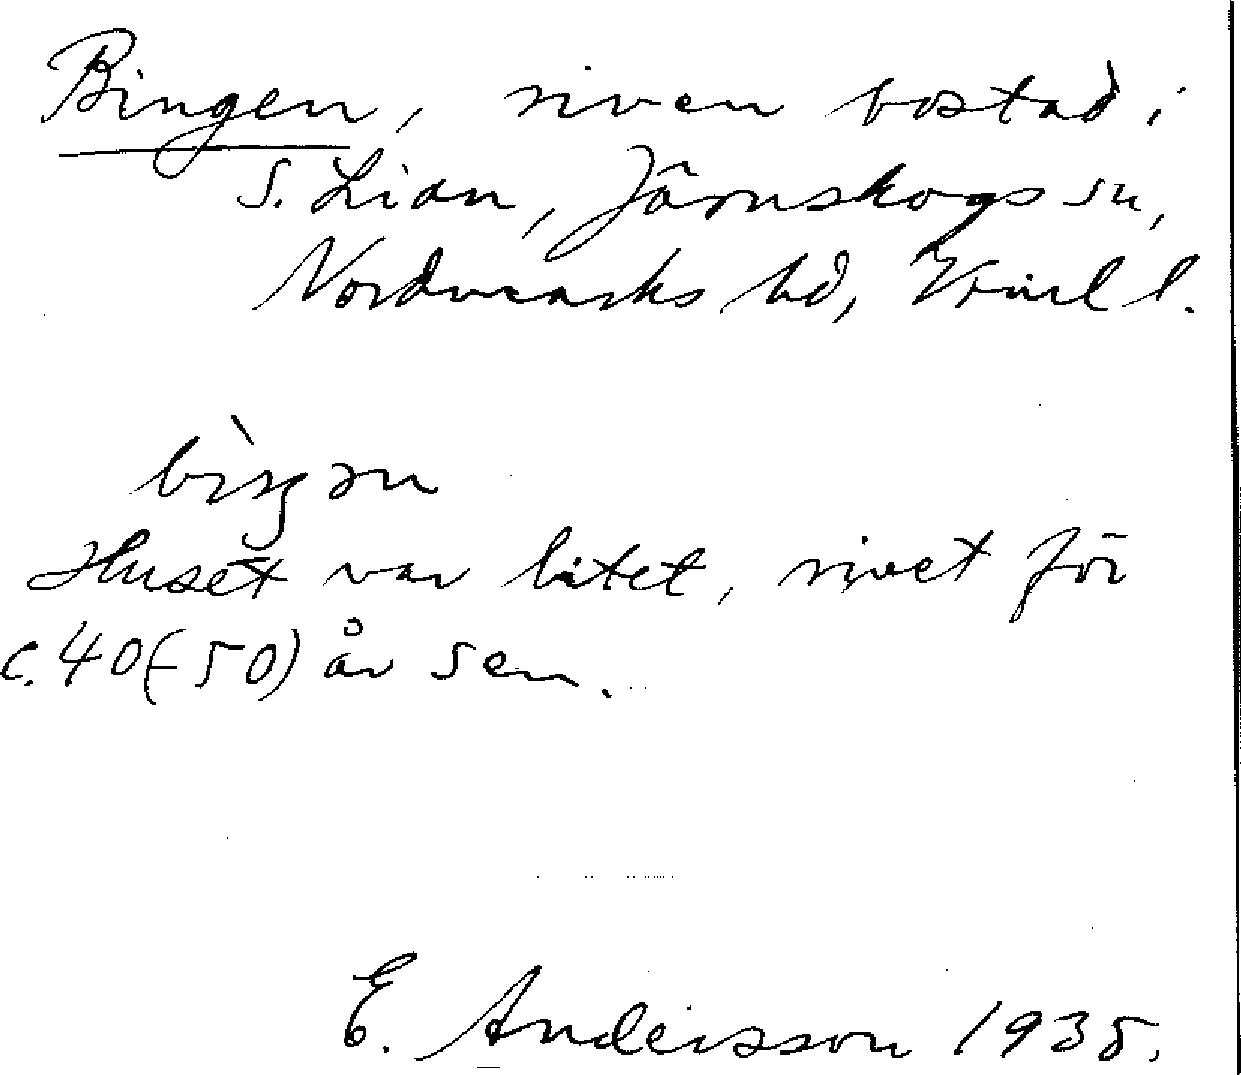 Bingen, riven bostad i
S. Lian, Järnskogs sn,
Nordmarks hd, Värml l.
bìŋən
Huset var litet, rivet för
c. 40(-50) år sen.
E. Andersson 1935.